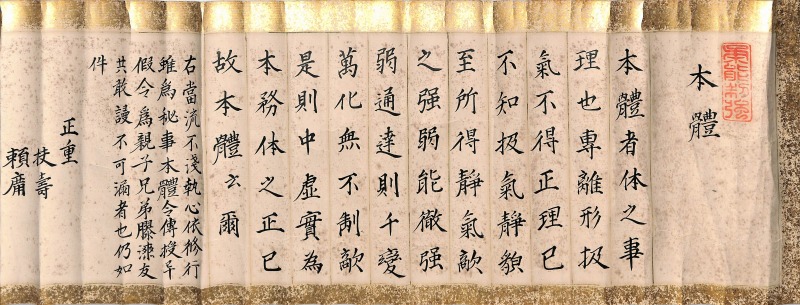 本體
本體者体之事
理也專離形扱
氣不得正理已
不知扱氣靜貌
至所得靜氣敵
之强弱能徹强
弱通達則千變
萬化無不制敵
是則中虛實為
本務体之正已
故本體云爾
右當流不淺執心依修行
雖為秘事本體令傳授畢
假令為親子兄弟膠漆友
共敢謾不可漏者也仍如
件
正重
扶壽
賴庸